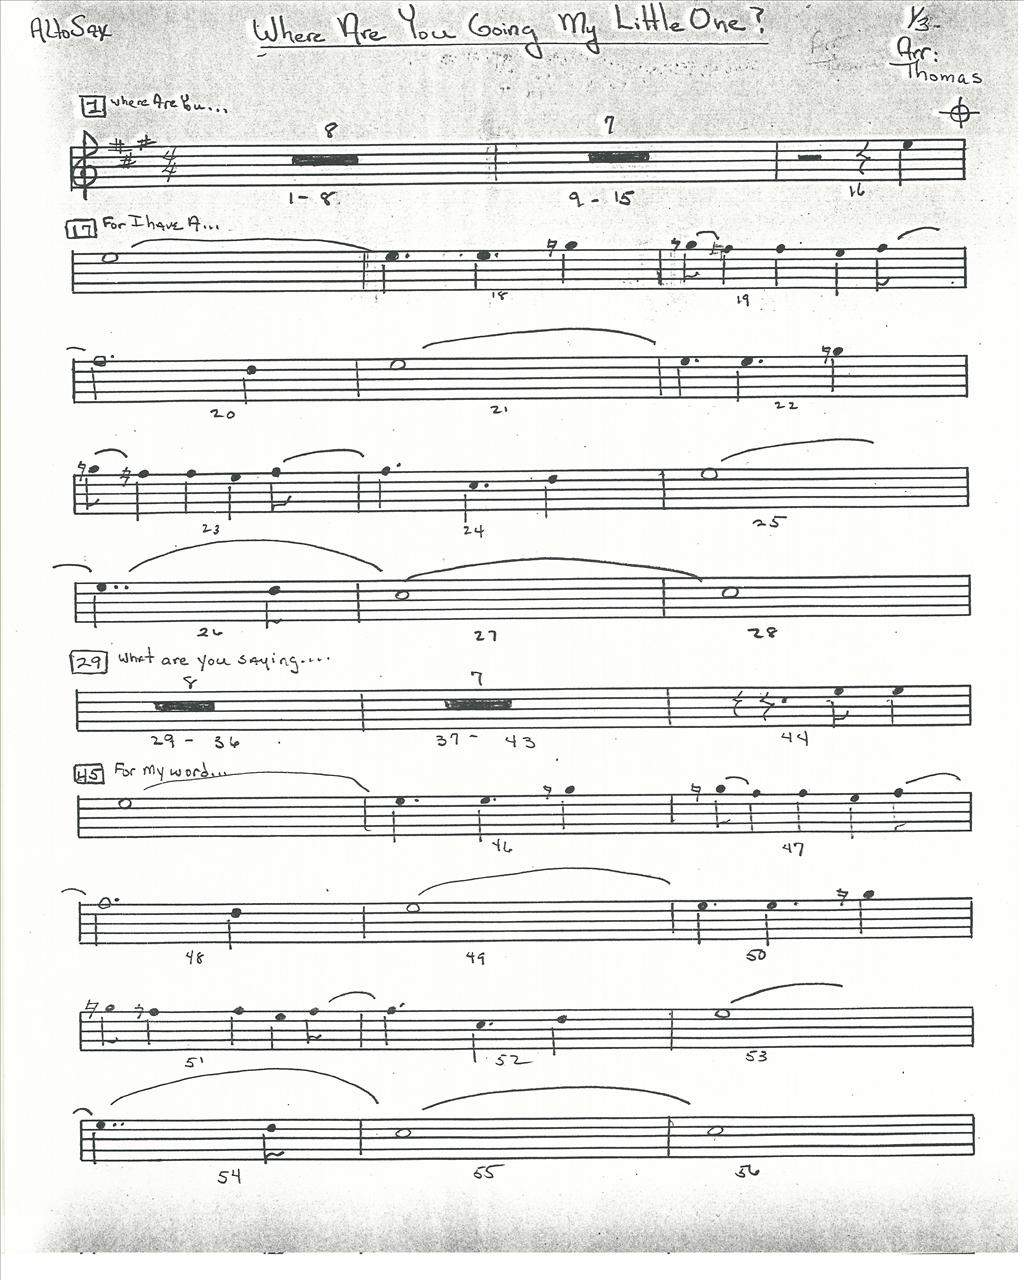 Alto Sax
Where Are You Going My Little One?
1/3
Arr:
Thomas
1 Where Are You...
4
4
8 7
1-8 9-15 16
17 For I have A...
18 19
20 21 22
23 24 25
26 27 28
29 What are you saying....
8 7
29-36 37-43 44
45 For my word...
46 47
48 49 50
51 52 53
54 55 56